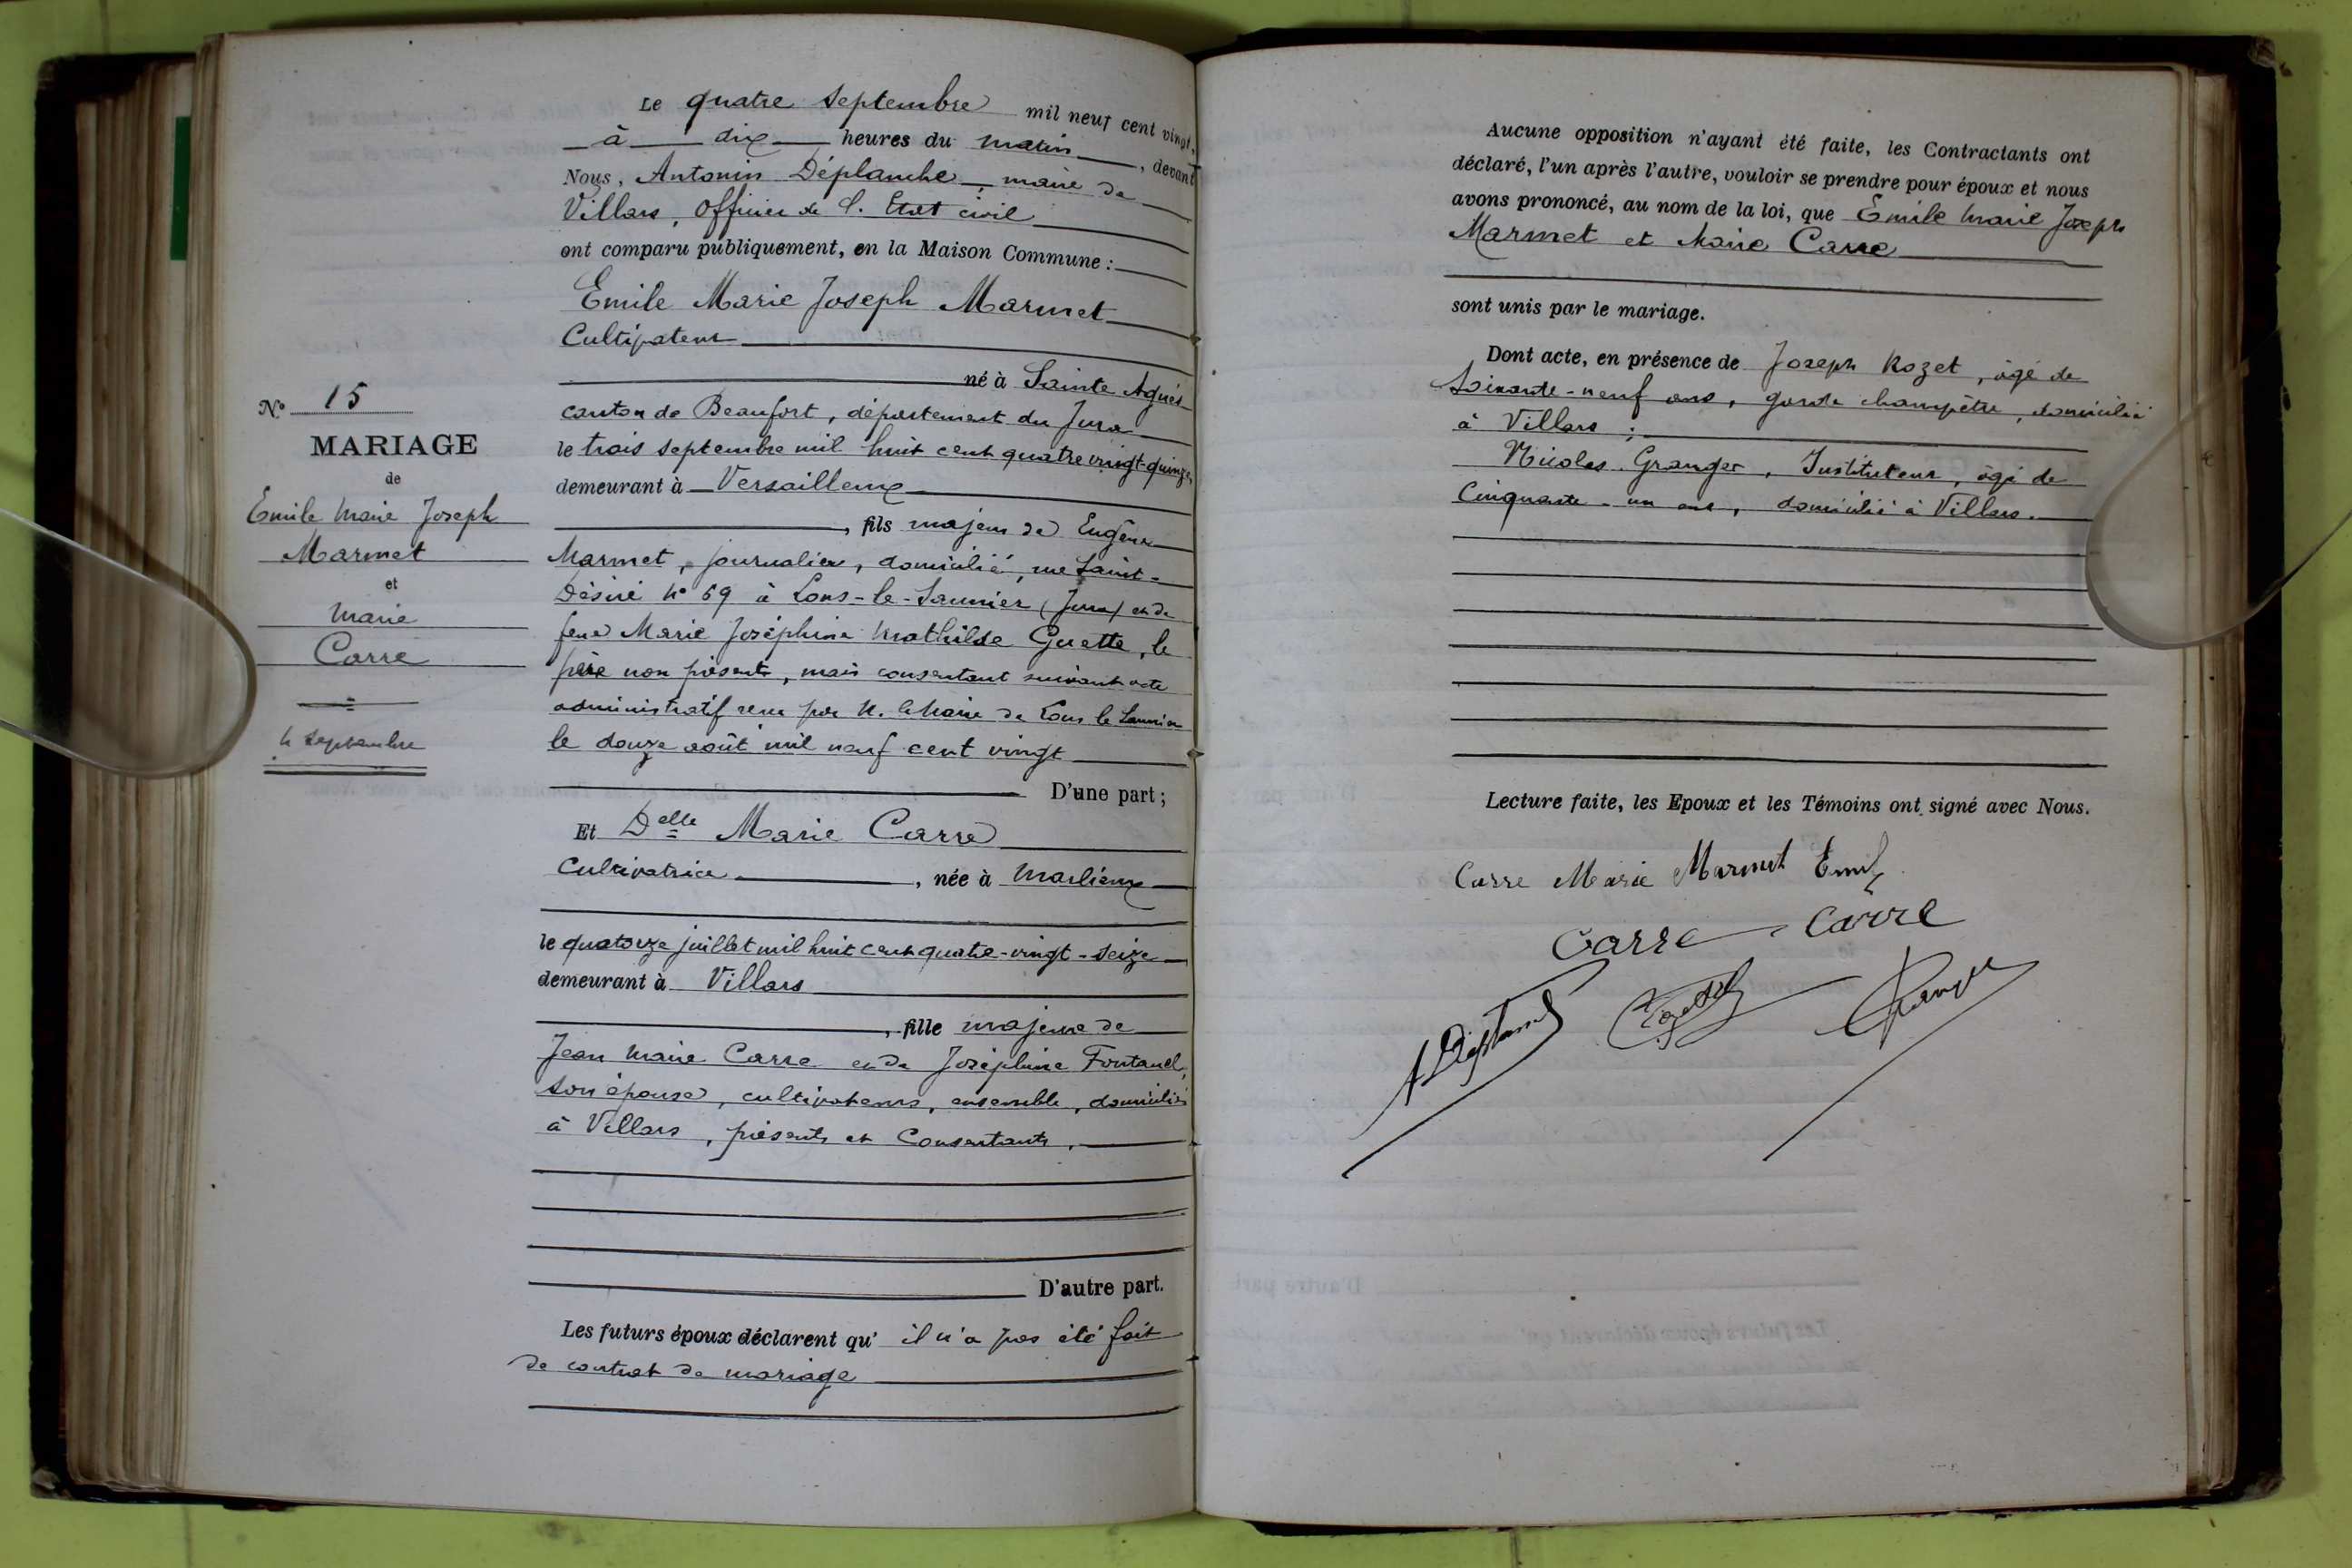 Le quatre septembre mil neuf cent vingt,
à dix heures du matin, devant
Nous, Antonin Déplanche, maire de
Villars, Officier de l'Etat civil
ont comparu publiquement, en la Maison Commune :
Emile Marie Joseph Marmet
Cultivateur
né à Sainte Agnès
canton de Beaufort, département du Jura
le trois septembre mil huit cent quatre vingt-quinze,
demeurant à Versailleux
, fils majeur de Eugène
Marmet, journalier, domicilié, rue Saint-
Désiré N° 69 à Lons-le-Saunier (Jura) et de
feue Marie Joséphine Mathilde Guette, le
père non présent, mais consentant suivant acte
administratif reçu par M. le Maire de Lons le Saunier
le douze août mil neuf cent vingt
D'une part ;
Et Delle Marie Carre
Cultivatrice, née à Marlieux
le quatorze juillet mil huit cent quatre-vingt-seize
demeurant à Villars
, fille majeure de
Jean Marie Carre et de Joséphine Fontanel,
son épouse, cultivateurs, ensemble, domiciliés
à Villars, présents et Consentants.
D'autre part.
Les futurs époux déclarent qu' il n'a pas été fait
de contrat de mariage
N° 15
MARIAGE
de
Emile Marie Joseph
Marmet
et
Marie
Carre
4 septembre
Aucune opposition n'ayant été faite, les Contractants ont
déclaré, l'un après l'autre, vouloir se prendre pour époux et nous
avons prononcé, au nom de la loi, que Emile Marie Joseph
Marmet et Marie Carre
sont unis par le mariage.
Dont acte, en présence de Joseph Rozet, âgé de
soixante-neuf ans, garde champêtre, domicilié
à Villars ;
Nicolas Granger, Instituteur, âgé de
Cinquante-un ans, domicilié à Villars.
Lecture faite, les Epoux et les Témoins ont signé avec Nous.
Carre Marie Marmet Emile
Carre Carre
A Déplanche Rozet Granger